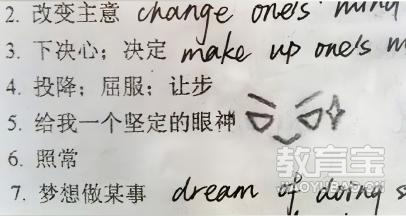 2. 改变主意 change one's mind
3. 下决心；决定 make up one's m
4. 投降；屈服；让步
5. 给我一个坚定的眼神
6. 照常
7. 梦想做某事 dream of doing s
教育宝